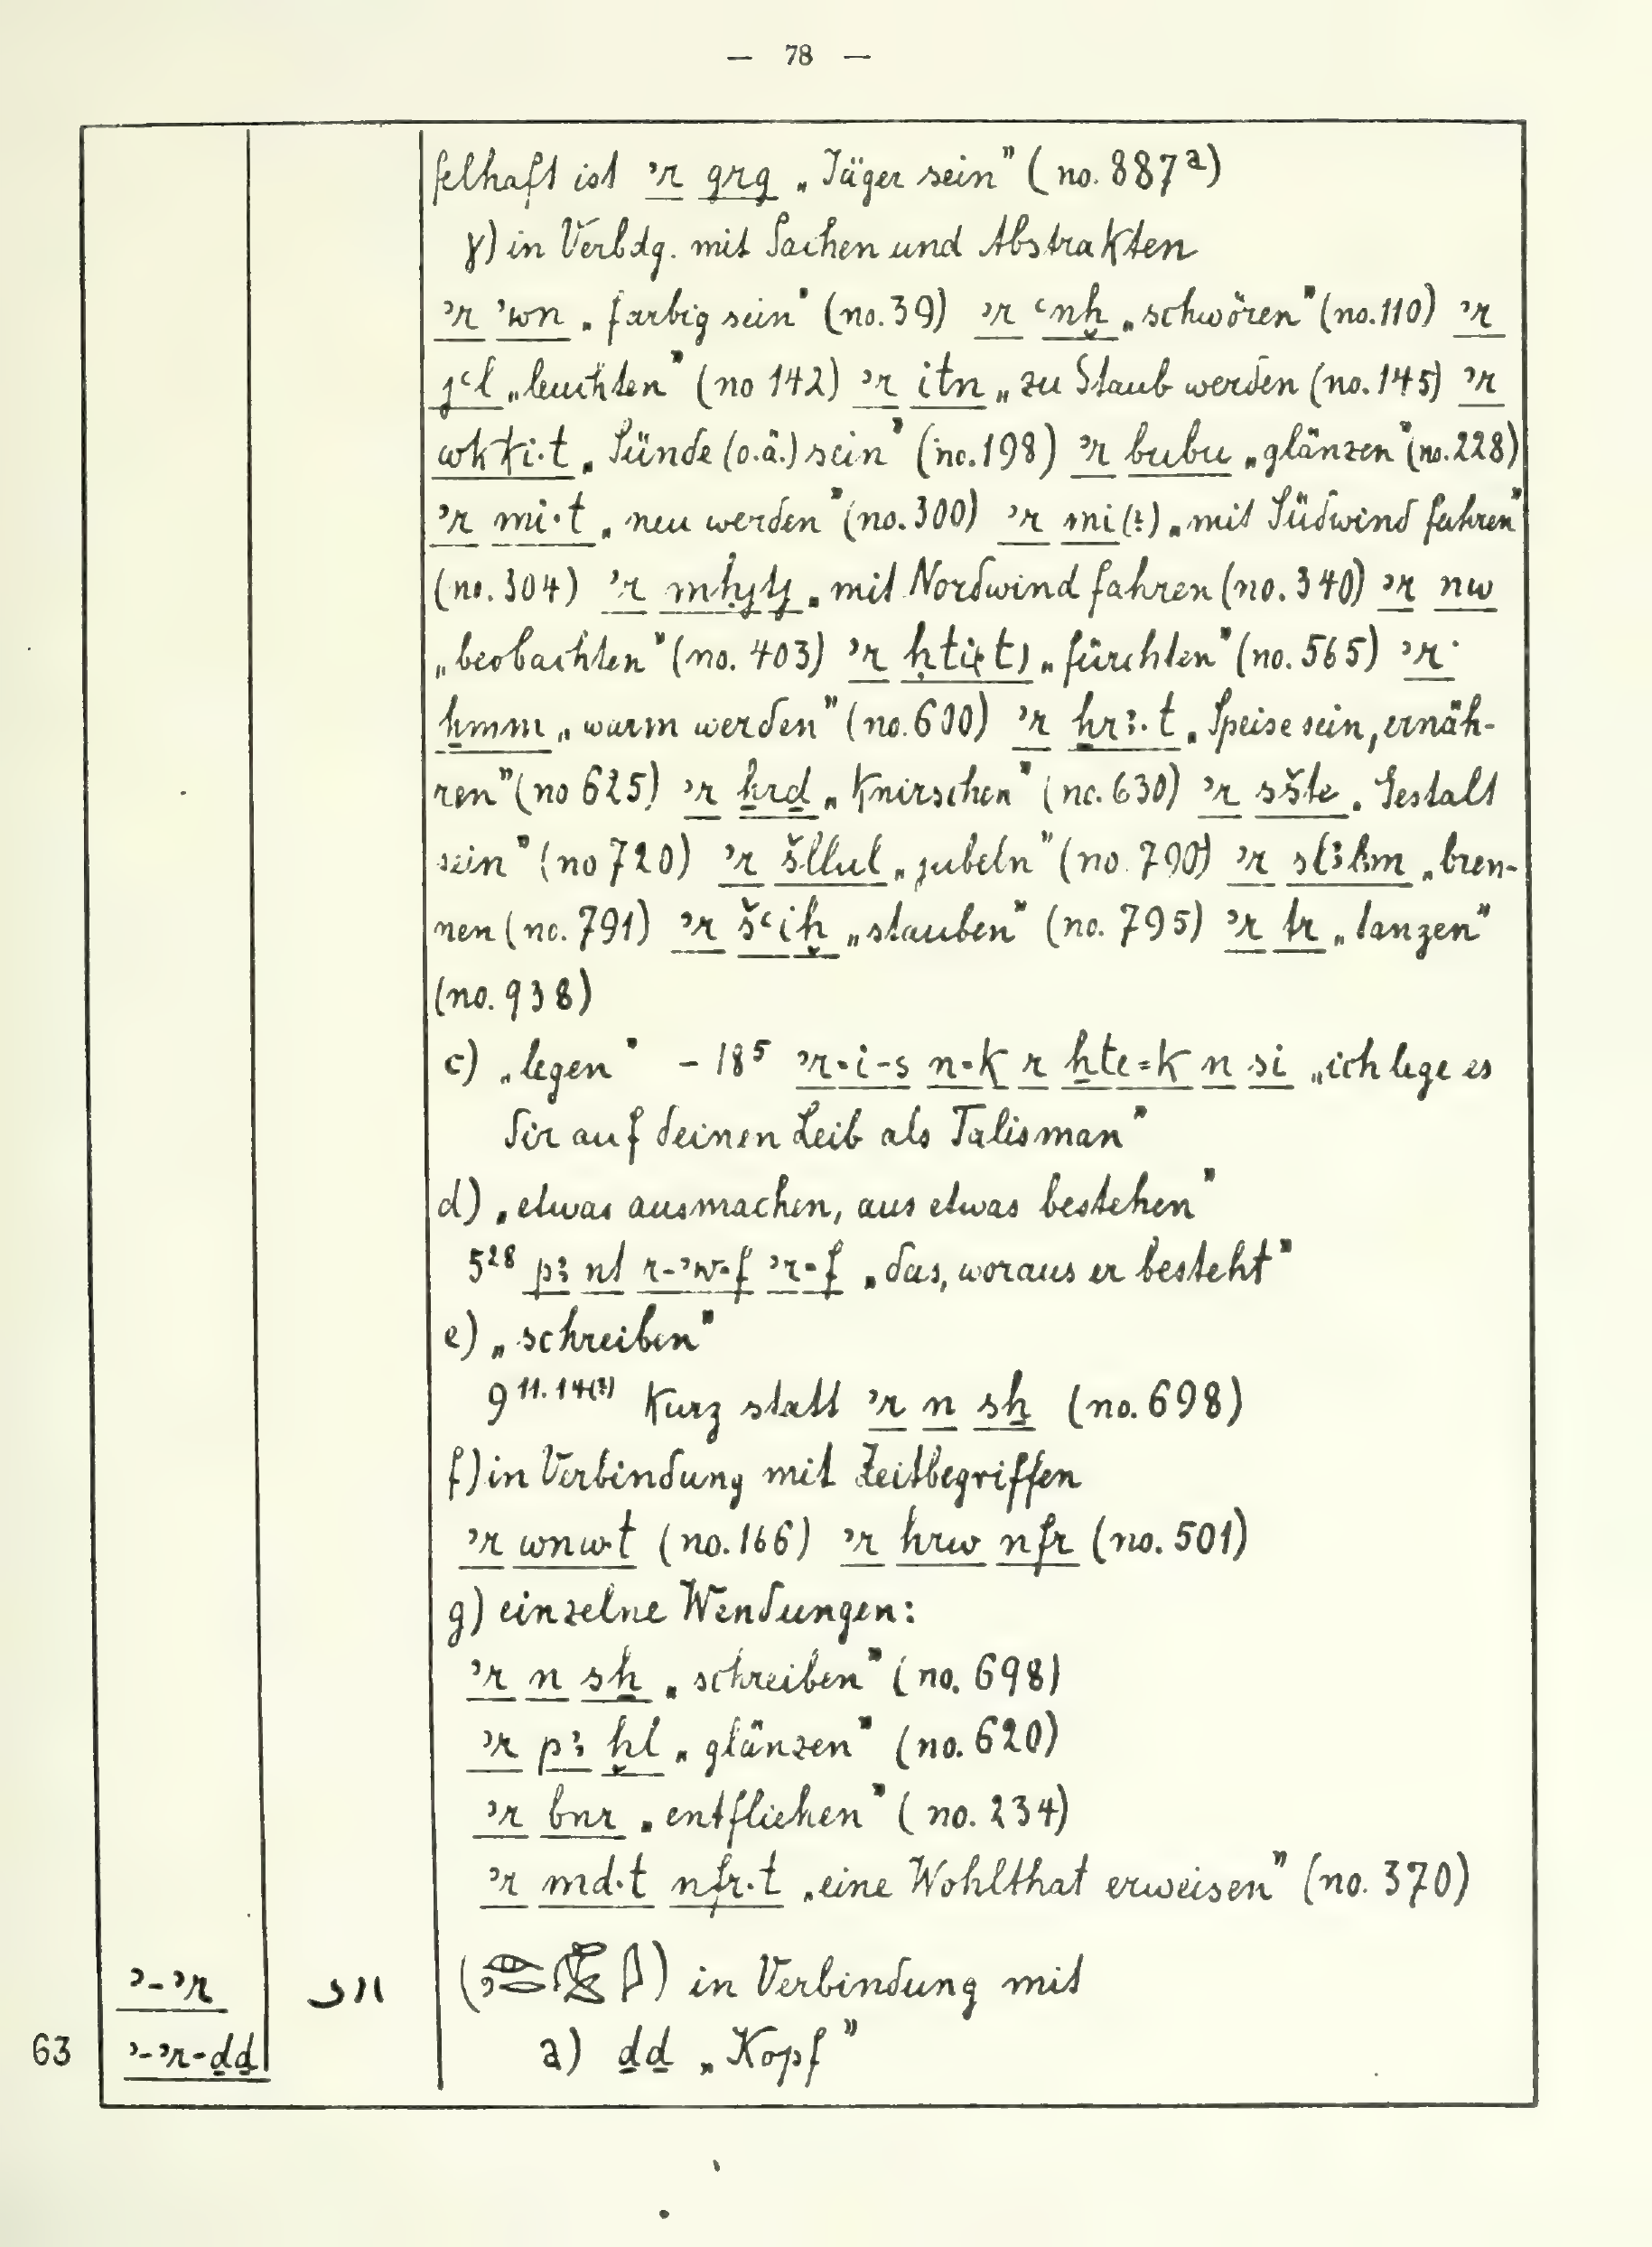 — 78 —
felhaft ist ꜥr grg „Jäger sein" (no. 887ᵃ)
γ) in Verbdg. mit Sachen und Abstrakten
ʾr ʾwn „farbig sein" (no. 39) ʾr ꜥnḫ „schwören" (no. 110) ʾr
jꜥl „leuchten" (no 142) ʾr itn „zu Staub werden (no. 145) ʾr
wkki·t „Sünde (o.ä.) sein" (no. 198) ʾr bubu „glänzen" (no. 228)
ʾr mi·t „neu werden" (no. 300) ʾr mi(?) „mit Südwind fahren"
(no. 304) ʾr mḥyty „mit Nordwind fahren (no. 340) ʾr nw
„beobachten" (no. 403) ʾr „fürchten" (no. 565) ʾr
ẖmm „warm werden" (no. 600) ʾr ẖrꜣ·t „Speise sein, ernäh-
ren" (no 625) ʾr ẖrd „Knirschen" (no. 630) ʾr sšte „Gestalt
sein" (no 720) ʾr šllul „jubeln" (no. 790) ʾr „bren-
nen (no. 791) ʾr šꜥiḫ „stauben" (no. 795) ʾr tr „tanzen"
(no. 938)
c) „legen" – 18⁵ ʾr·i-s n·k r ẖte=k n si „ich lege es
dir auf deinen Leib als Talisman"
d) „etwas ausmachen, aus etwas bestehen"
5²⁸ pꜣ nt r-ʾw·f ʾr·f „das, woraus er besteht"
e) „schreiben"
9¹¹·¹⁴⁽?⁾ Kurz statt ʾr n sẖ (no. 698)
f) in Verbindung mit Zeitbegriffen
ʾr wnw·t (no. 166) ʾr hrw nfr (no. 501)
g) einzelne Wendungen:
ʾr n sẖ „schreiben" (no. 698)
ʾr pꜣ ḫl „glänzen" (no. 620)
ʾr bnr „entfliehen" (no. 234)
ʾr md·t nfr·t „eine Wohlthat erweisen" (no. 370)
ʾ-ʾr ( ) in Verbindung mit
63 ʾ-ʾr-ḏḏ a) ḏḏ „Kopf"